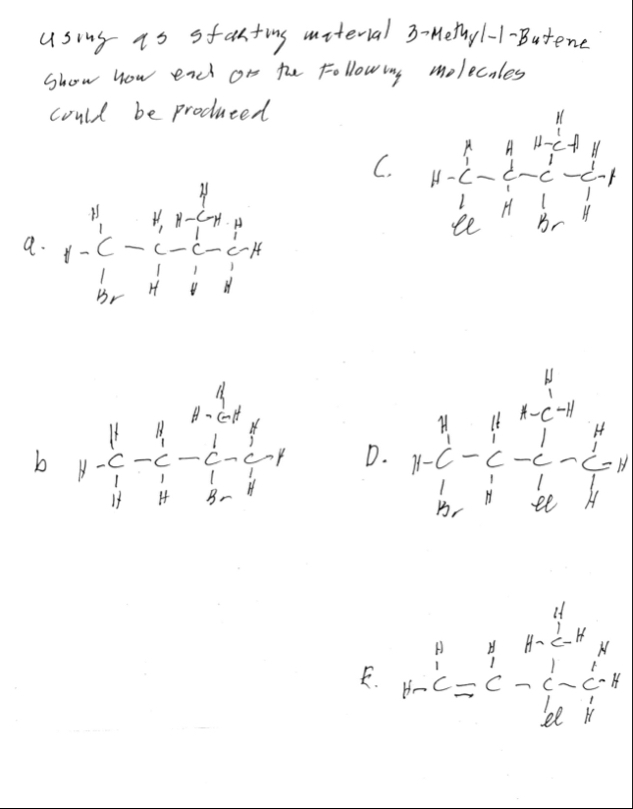 using as starting material 3-Methyl-1-Butene
Show how each of the Following molecules
could be produced
C.
H
H H H-C-H H
H-C-C-C-C-H
Cl H Br H
a.
H
H H, H-C-H H
H-C-C-C-C-H
Br H H H
b
H
H-C-H
H H H
H-C-C-C-C-H
H H Br H
D.
H
H H H-C-H H
H-C-C-C-C-H
Br H Cl H
E.
H
H H H-C-H H
H-C=C-C-C-H
Cl H